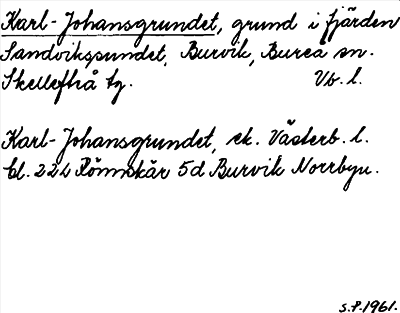 Karl-Johansgrundet, grund i fjärden
Sandvikssundet, Burvik, Bureå sn.
Skellefteå tg. Vb. l.
Karl-Johansgrundet, ek. Västerb. l.
bl. 224 Rönnskär 5d Burvik Norrbyn.
S.P. 1961.